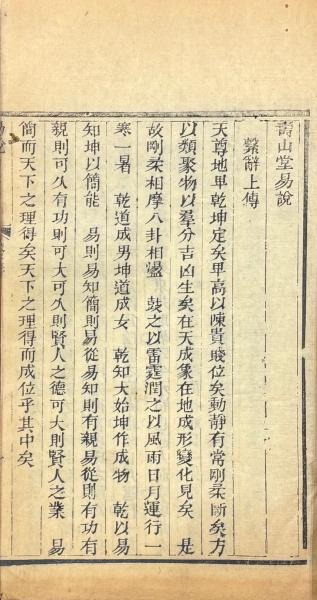 壽山堂易說
繫辭上傳
天尊地卑乾坤定矣卑高以陳貴賤位矣動靜有常剛柔斷矣方
以類聚物以羣分吉凶生矣在天成象在地成形變化見矣　是
故剛柔相摩八卦相盪　鼓之以雷霆潤之以風雨日月運行一
寒一暑　乾道成男坤道成女　乾知大始坤作成物　乾以易
知坤以簡能　易則易知簡則易從易知則有親易從則有功有
親則可久有功則可大可久則賢人之德可大則賢人之業　易
簡而天下之理得矣天下之理得而成位乎其中矣